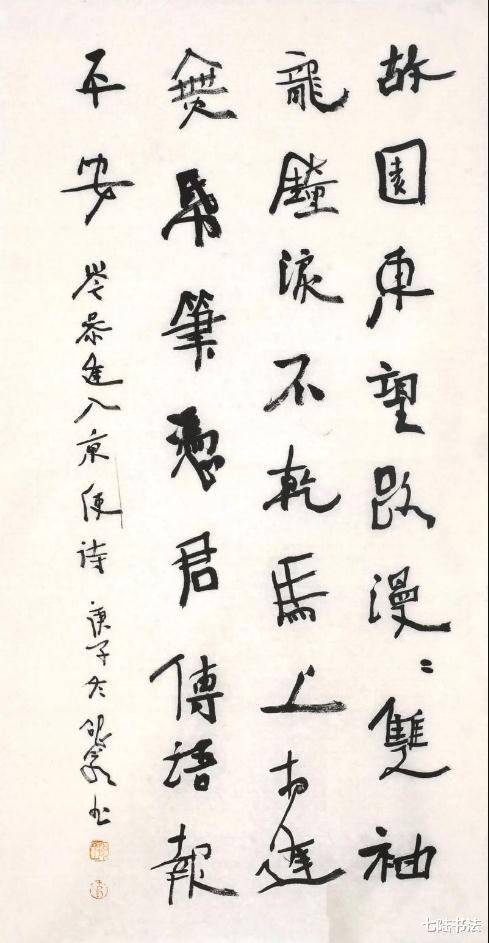 故園東望路漫〻雙袖
龍鐘淚不乾馬上相逢
無帋筆憑君傳語報
平安 岑參逢入京使詩 庚子冬 书
七陆书法